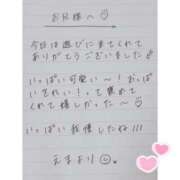 お兄様へ♡
今日は遊びにきてくれて
ありがとうございました♪
いっぱい可愛い〜！おっぱ
いきれい！って褒めて
くれて嬉しかった〜♡
いっぱい我慢したね!!!
えまより☺